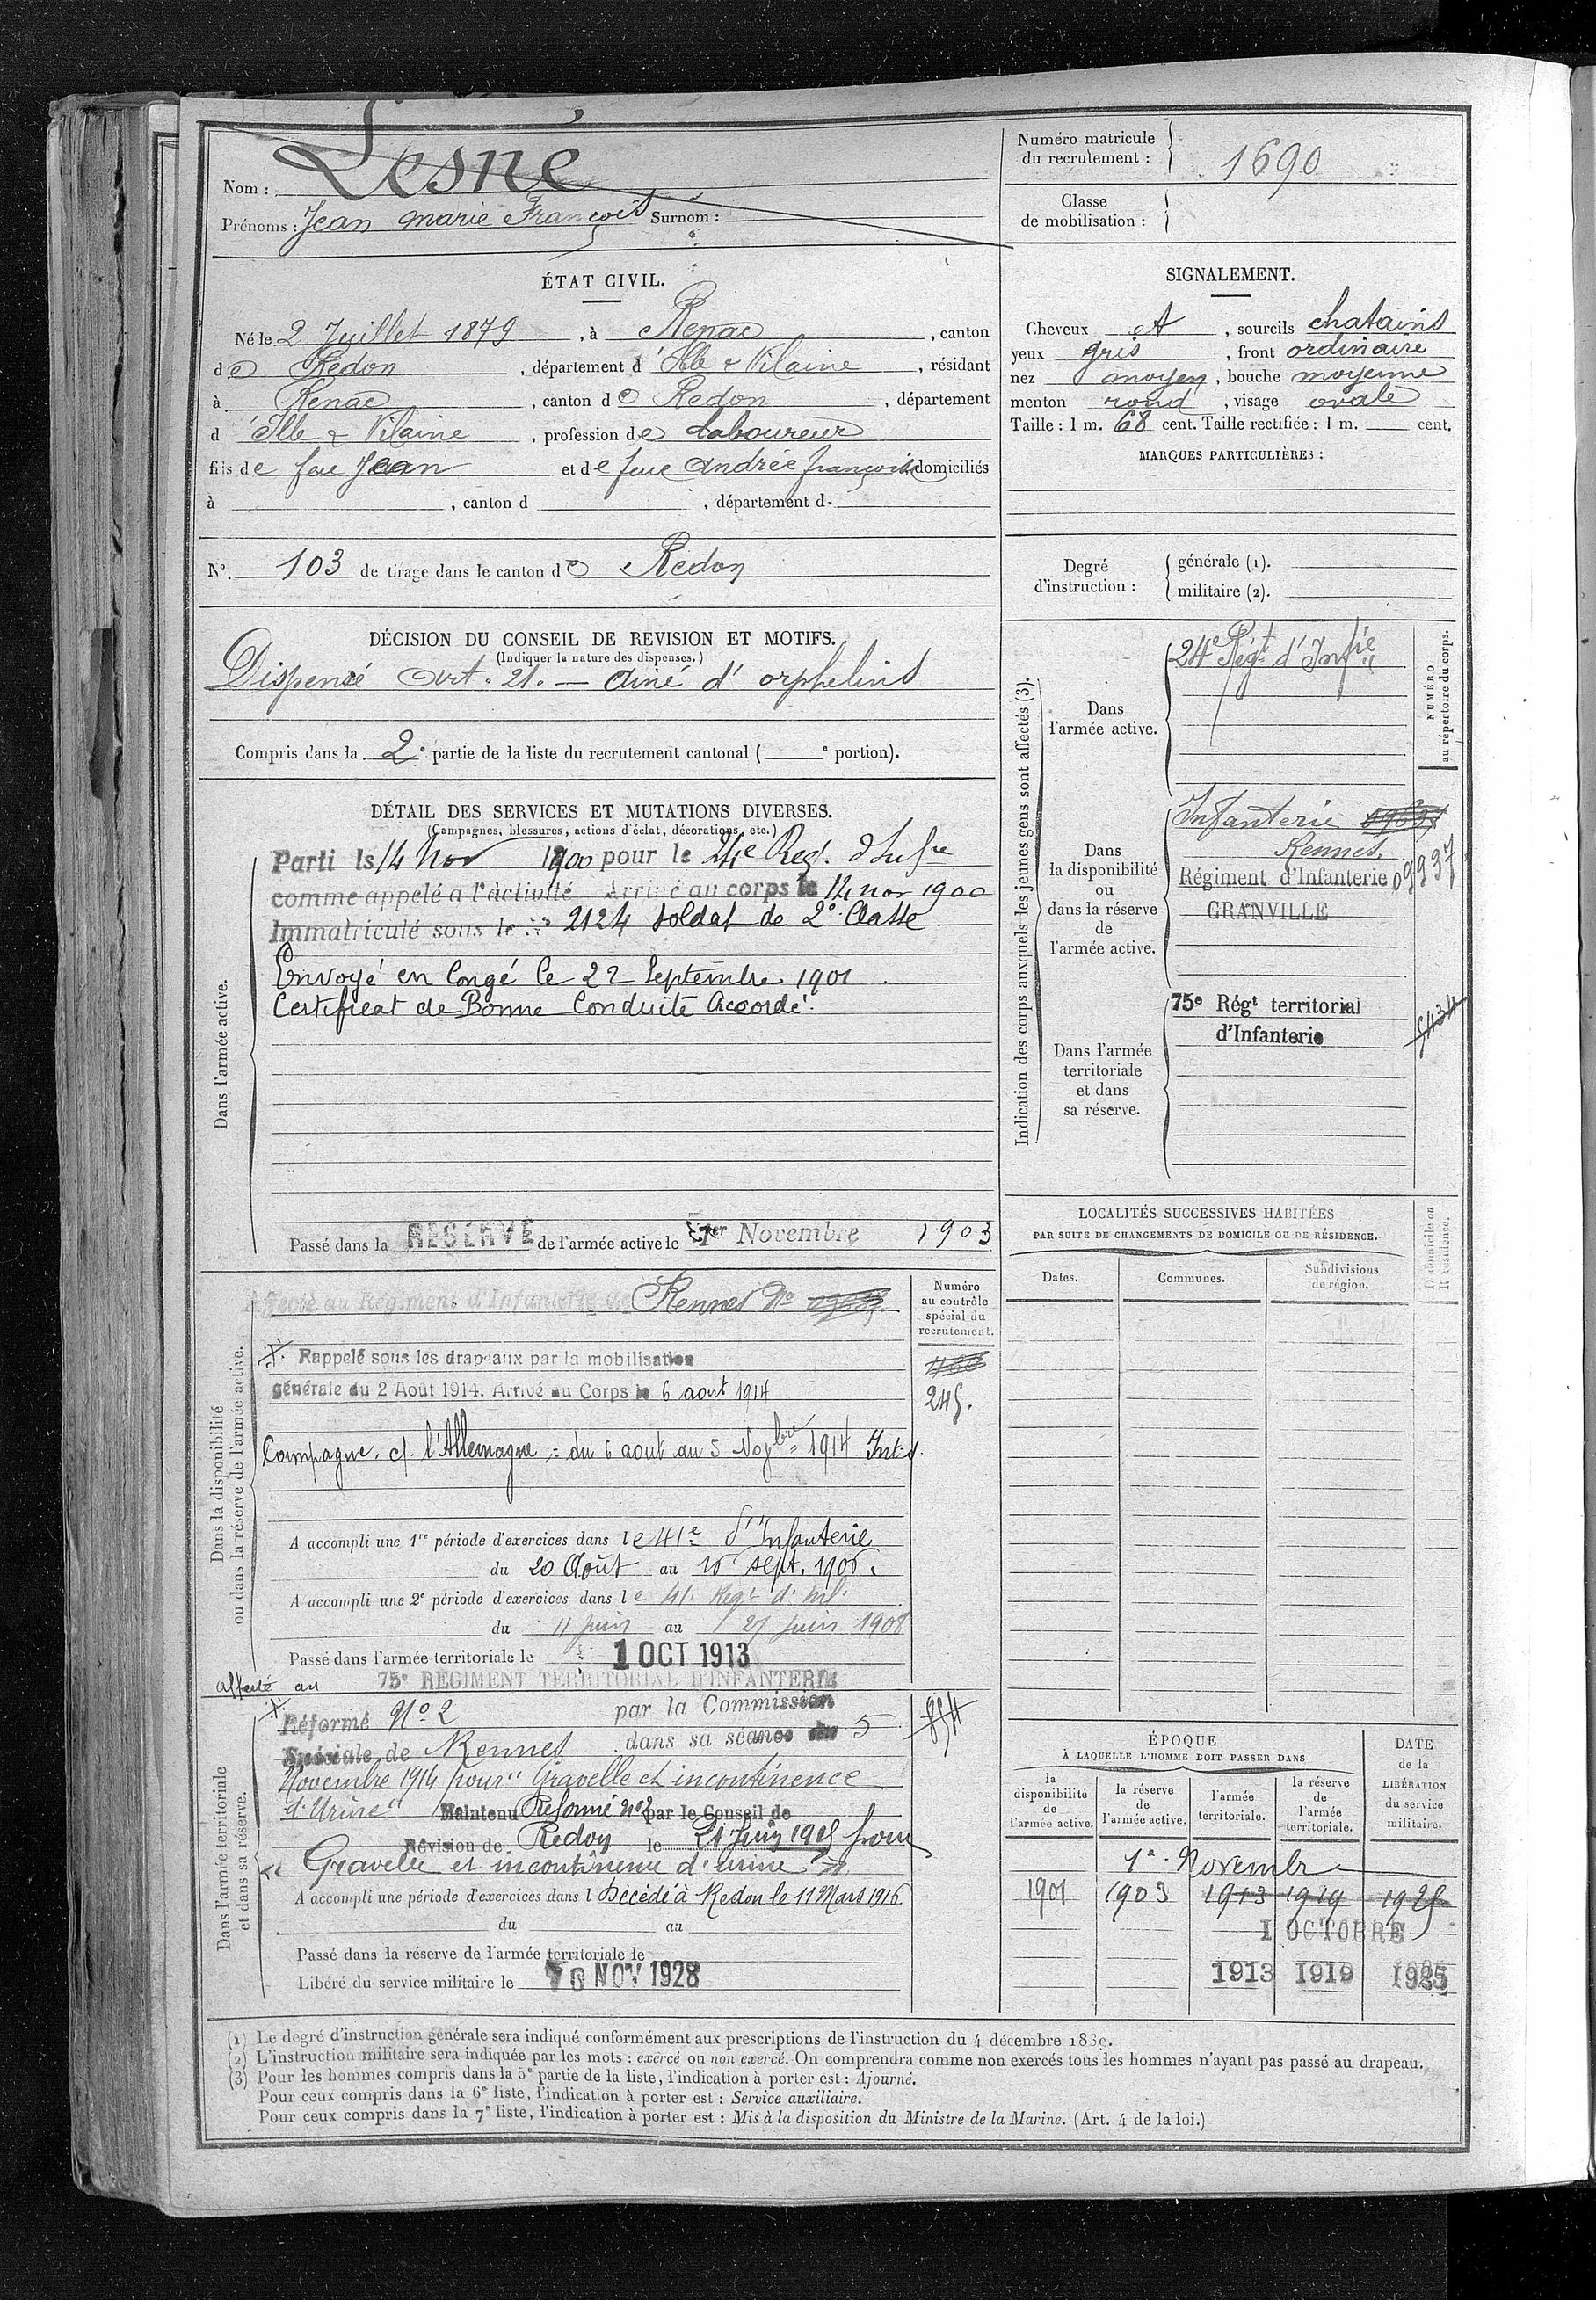 Nom : Lesné
Prénoms : Jean marie François Surnom :
Numéro matricule
du recrutement : 1690
Classe
de mobilisation :
ÉTAT CIVIL.
Né le 2 Juillet 1879, à Renac, canton
de Redon, département d'Ille & Vilaine, résidant
à Renac, canton de Redon, département
d'Ille & Vilaine, profession de laboureur
fils de feu Jean et de feue Andrée françoise domiciliés
à , canton d , département d
N° 103 de tirage dans le canton de Redon
SIGNALEMENT.
Cheveux et , sourcils chatains
yeux gris , front ordinaire
nez moyen , bouche moyenne
menton rond , visage ovale
Taille : 1 m. 68 cent. Taille rectifiée : 1 m. cent.
MARQUES PARTICULIÈRES :
Degré
d'instruction :
générale (1).
militaire (2).
DÉCISION DU CONSEIL DE REVISION ET MOTIFS.
(Indiquer la nature des dispenses.)
Dispensé Art. 21. — Ainé d'orphelins
Compris dans la 2e partie de la liste du recrutement cantonal ( e portion).
DÉTAIL DES SERVICES ET MUTATIONS DIVERSES.
(Campagnes, blessures, actions d'éclat, décorations, etc.)
Dans l'armée active.
Parti le 14 Nov 1900 pour le 24e Reg. d'Infre
comme appelé a l'activité Arrivé au corps le 14 nov 1900
Immatriculé sous le n° 2124 soldat de 2e Classe
Envoyé en Congé le 22 Septembre 1901
Certificat de Bonne Conduite Accordé.
Passé dans la RÉSERVE de l'armée active le 1er Novembre 1903
Indication des corps auxquels les jeunes gens sont affectés (3).
NUMÉRO
au répertoire du corps.
Dans
l'armée active.
24e Régt d'Infie
Dans
la disponibilité
ou
dans la réserve
de
l'armée active.
Infanterie
Rennes.
Régiment d'Infanterie 09937
GRANVILLE
Dans l'armée
territoriale
et dans
sa réserve.
75e Régt territorial
d'Infanterie
LOCALITÉS SUCCESSIVES HABITÉES
PAR SUITE DE CHANGEMENTS DE DOMICILE OU DE RÉSIDENCE.
D domicile ou
R résidence.
Dates. Communes. Subdivisions
de région.
Dans la disponibilité
ou dans la réserve de l'armée active.
Affecté au Régiment d'Infanterie de Rennes No
Numéro
au contrôle
spécial du
recrutement.
Rappelé sous les drapeaux par la mobilisation
générale du 2 Août 1914. Arrivé au Corps le 6 aout 1914
245.
Campagne c/ l'Allemagne : du 6 aout au 5 Novbre 1914 Int
A accompli une 1re période d'exercices dans le 41e d'Infanterie
du 20 Août au 16 sept. 1906.
A accompli une 2e période d'exercices dans le 41. Regt d'inf.
du 11 juin au 27 juin 1908
Passé dans l'armée territoriale le 1 OCT 1913
affecté au 75e REGIMENT TERRITORIAL D'INFANTERIE
Dans l'armée territoriale
et dans sa réserve.
Réformé No 2 par la Commission
Spéciale de Rennes dans sa séance du 5
Novembre 1914 pour "Gravelle et incontinence
d'Urine" Maintenu Réformé no2 par le Conseil de
Révision de Redon le 21 Juin 1915 pour
"Gravelle et incontinence d'urine"
A accompli une période d'exercices dans l Décédé à Redon le 11 Mars 1916
du au
Passé dans la réserve de l'armée territoriale le
Libéré du service militaire le 10 NOV 1928
ÉPOQUE
À LAQUELLE L'HOMME DOIT PASSER DANS
DATE
de la
LIBÉRATION
du service
militaire.
la
disponibilité
de
l'armée active.
la réserve
de
l'armée active.
l'armée
territoriale.
la réserve
de
l'armée
territoriale.
1er Novembre
1901 1903 1913 1919 1925
1 OCTOBRE
1913 1919 1925
(1) Le degré d'instruction générale sera indiqué conformément aux prescriptions de l'instruction du 4 décembre 1889.
(2) L'instruction militaire sera indiquée par les mots : exercé ou non exercé. On comprendra comme non exercés tous les hommes n'ayant pas passé au drapeau.
(3) Pour les hommes compris dans la 5e partie de la liste, l'indication à porter est : Ajourné.
Pour ceux compris dans la 6e liste, l'indication à porter est : Service auxiliaire.
Pour ceux compris dans la 7e liste, l'indication à porter est : Mis à la disposition du Ministre de la Marine. (Art. 4 de la loi.)